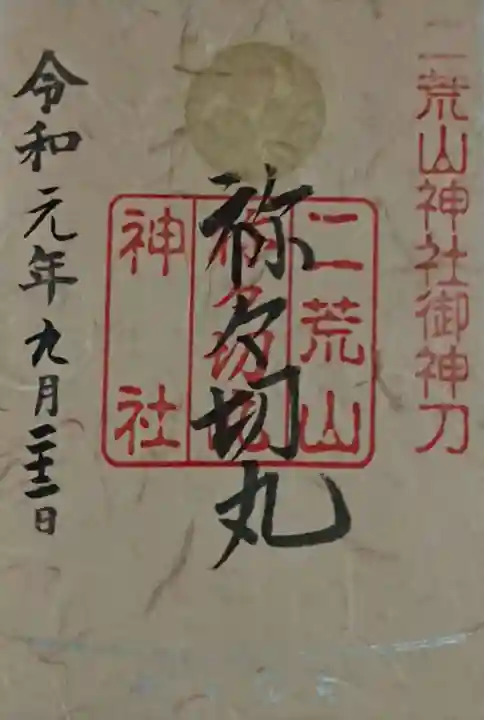 二荒山神社御神刀
二荒山
祢々切丸
祢々切丸
神社
令和元年九月二十二日